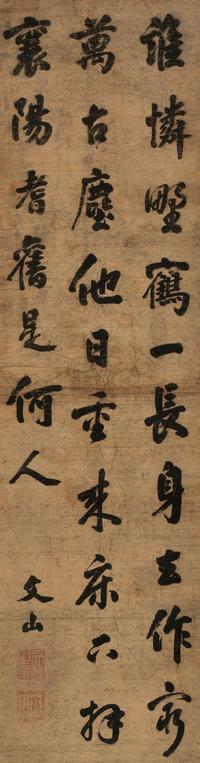 誰憐野鶴一長身去作
萬古塵他日重來床下拜
襄陽耆舊是何人
文山